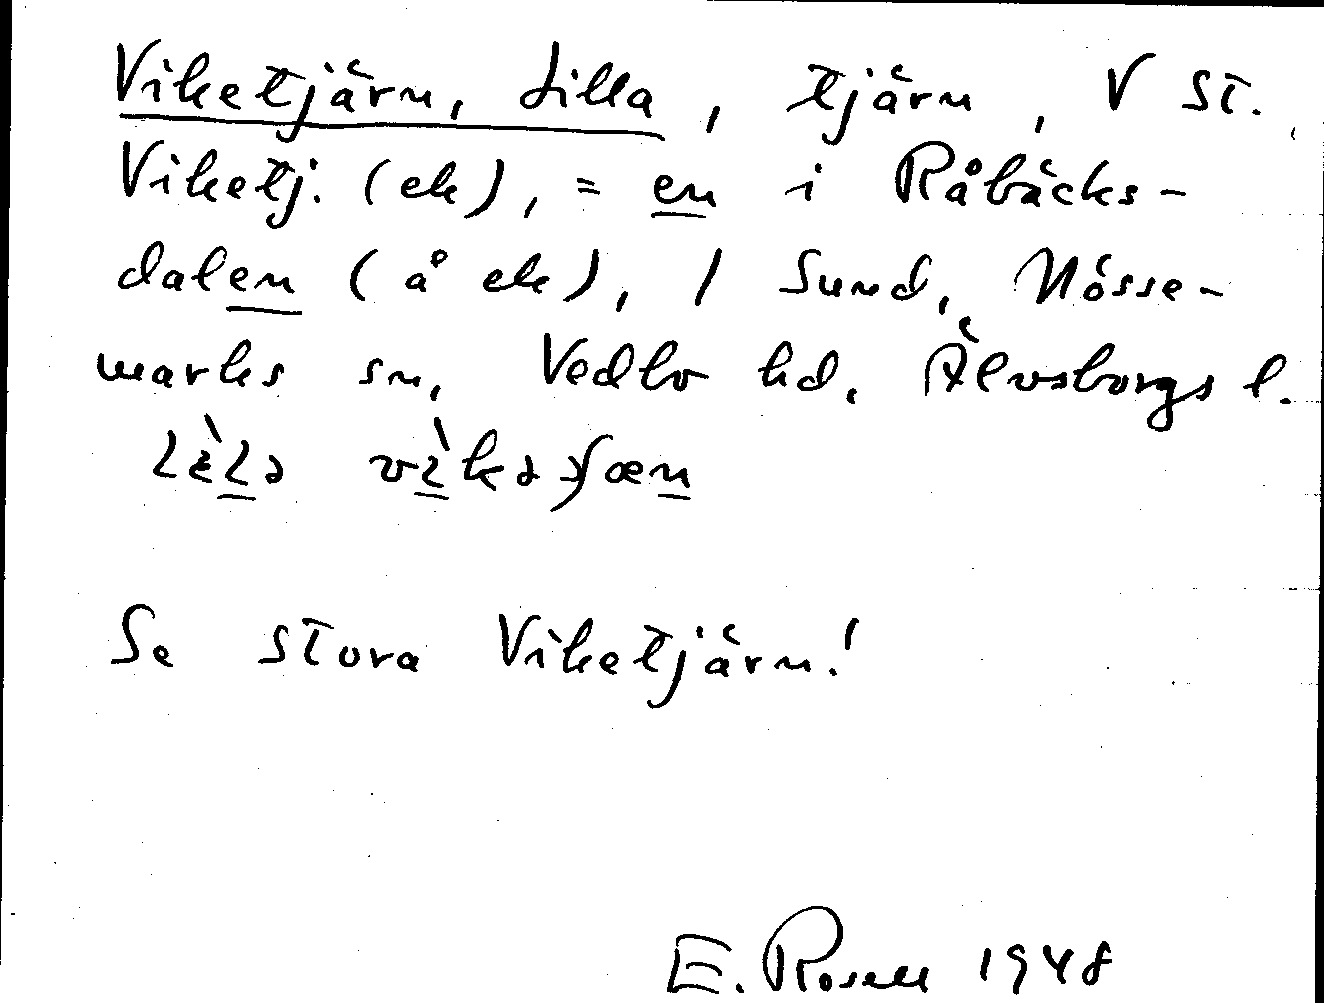 Viketjärn, Lilla, tjärn, V St.
Viketj. (ek), = en i Råbäcks-
dalen (å ek), / Sund, Nösse-
marks sn, Vedbo hd. Älvsborgs l.
Se Stora Viketjärn!
E. Rosell 1948